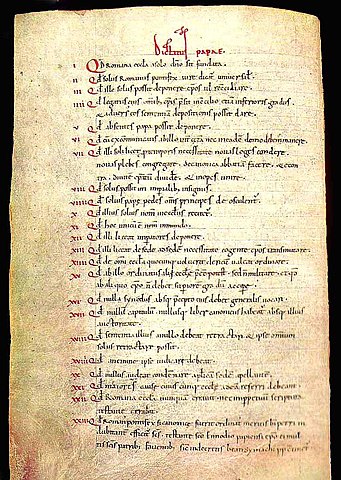 Dictatus papae.
I Qd Romana eccła a solo dño sit fundata.
II Qd solus Romanus pontifex iure dicatur universał.
III Qd ille solus possit deponere epos uł reconciliare.
IIII Qd legatus eius omib; epis presit in concilio etiam inferioris gradus
& adversus eos sententiam depositionis possit dare.
V Qd absentes papa possit deponere.
VI Qd cū excommunicatis ab illo int cetera nec in eadē domo debemus manere.
VII Qd illi soli licet pro temporis necessitate novas leges condere
novas plebes congregare de canonica abbatiam facere & econ
tra divite epatū dividere & inopes unire.
VIII Qd solus possit uti imperialib; insigniis.
VIIII Qd solius pape pedes oms principes deosculentur.
X Qd illius solius nomen in ecclesiis recitetur.
XI Qd hoc unicū e nom in mundo.
XII Qd illi liceat imperatores deponere.
XIII Qd illi liceat de sede ad sedē necessitate cogente epos transmutare.
XIIII Qd de omi eccła quocunq; voluerit clericū valeat ordinare.
XV Qd ab illo ordinatus alii eccłe pesse potest sed n militare & qd
ab aliquo epo n debet superiore gradū accipere.
XVI Qd nulla synodus absq; pcepto eius debet generalis vocari.
XVII Qd nullū capitulū nullusq; liber canonicus habeatur absq; illius
auctoritate.
XVIII Qd sententia illius a nullo debeat retractari & ipse omniū
solus retractare possit.
XVIIII Qd a nemine ipse iudicari debeat.
XX Qd nullus audeat condemnare aplicā sedē apellante.
XXI Qd maiores cause cuiuscunq; eccłe ad eā referri debeant.
XXII Qd Romana eccła nunquā erravit nec inppetuū scriptura
testante errabit.
XXIII Qd Romanus pontifex si canonice fuerit ordinatus meritis bi petri in
dubitanter efficitur scs testante sco Ennodio papiensi epo ei mul
tis scis patrib; faventib; sicut in decretis beati symachi pp continet